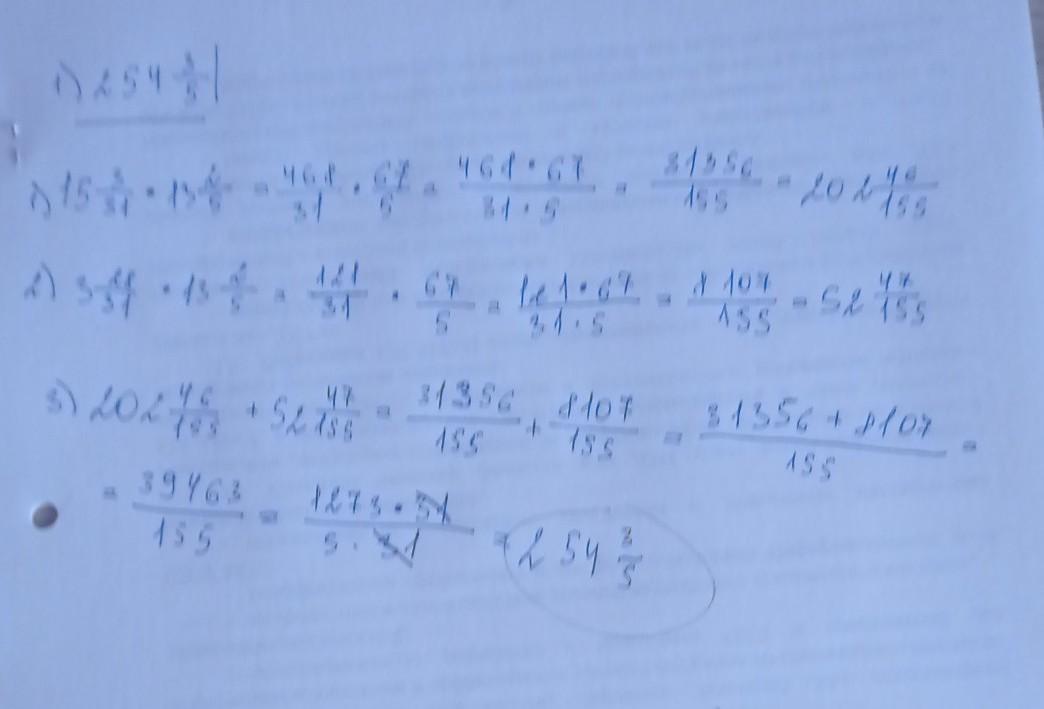 1) 254 3/5
1) 15 3/31 · 13 2/5 = 468/31 · 67/5 = 468 · 67/31 · 5 = 31356/155 = 202 46/155
2) 3 28/31 · 13 2/5 = 121/31 · 67/5 = 121 · 67/31 · 5 = 8107/155 = 52 47/155
3) 202 46/155 + 52 47/155 = 31356/155 + 8107/155 = 31356 + 8107/155 =
= 39463/155 = 1273 · 31/5 · 31 = 254 3/5